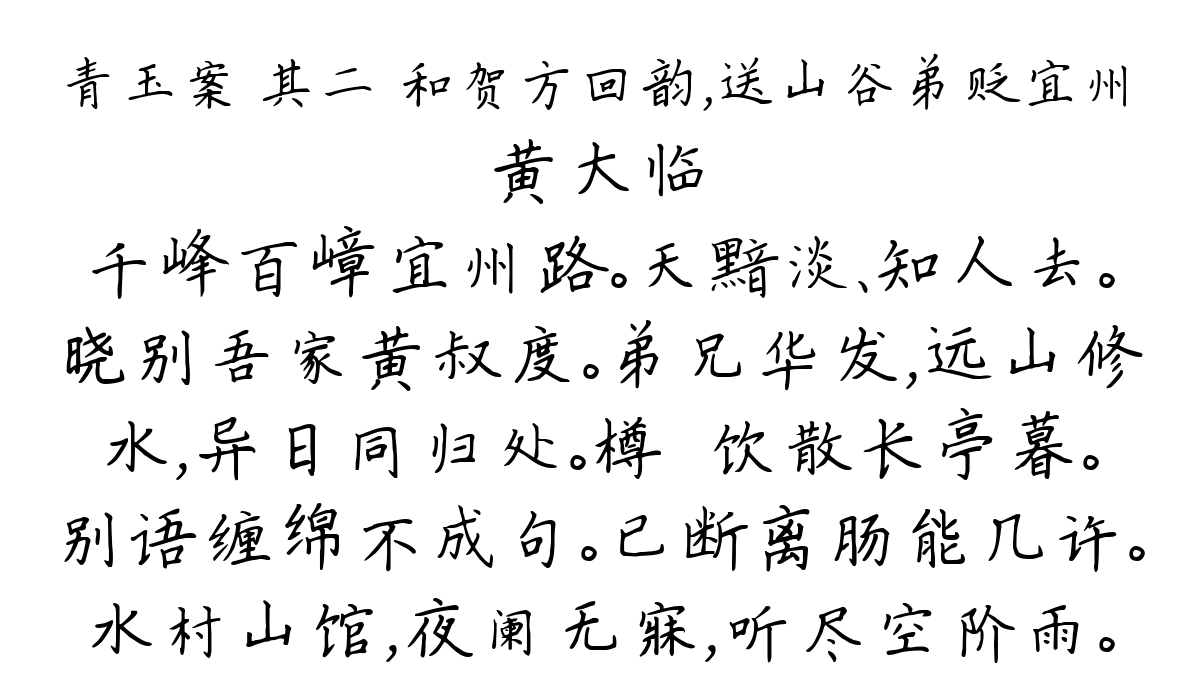 青玉案 其二 和贺方回韵,送山谷弟贬宜州
黄大临
千峰百嶂宜州路。天黯淡、知人去。
晓别吾家黄叔度。弟兄华发,远山修
水,异日同归处。樽 饮散长亭暮。
别语缠绵不成句。已断离肠能几许。
水村山馆,夜阑无寐,听尽空阶雨。